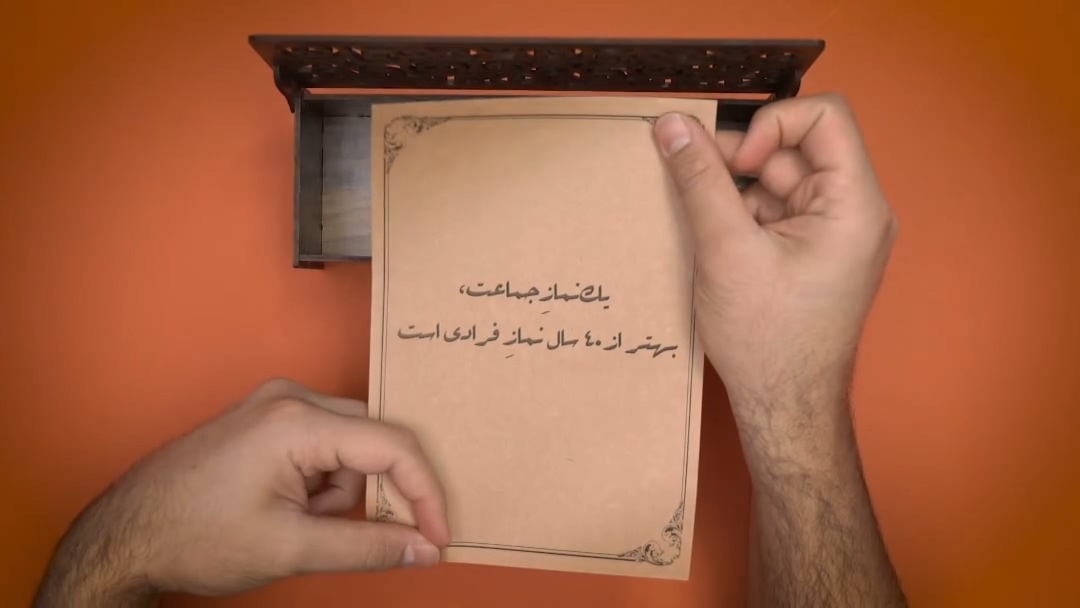 یك نمازِ جماعت،
بهتر از ۴۰ سال نمازِ فرادی است